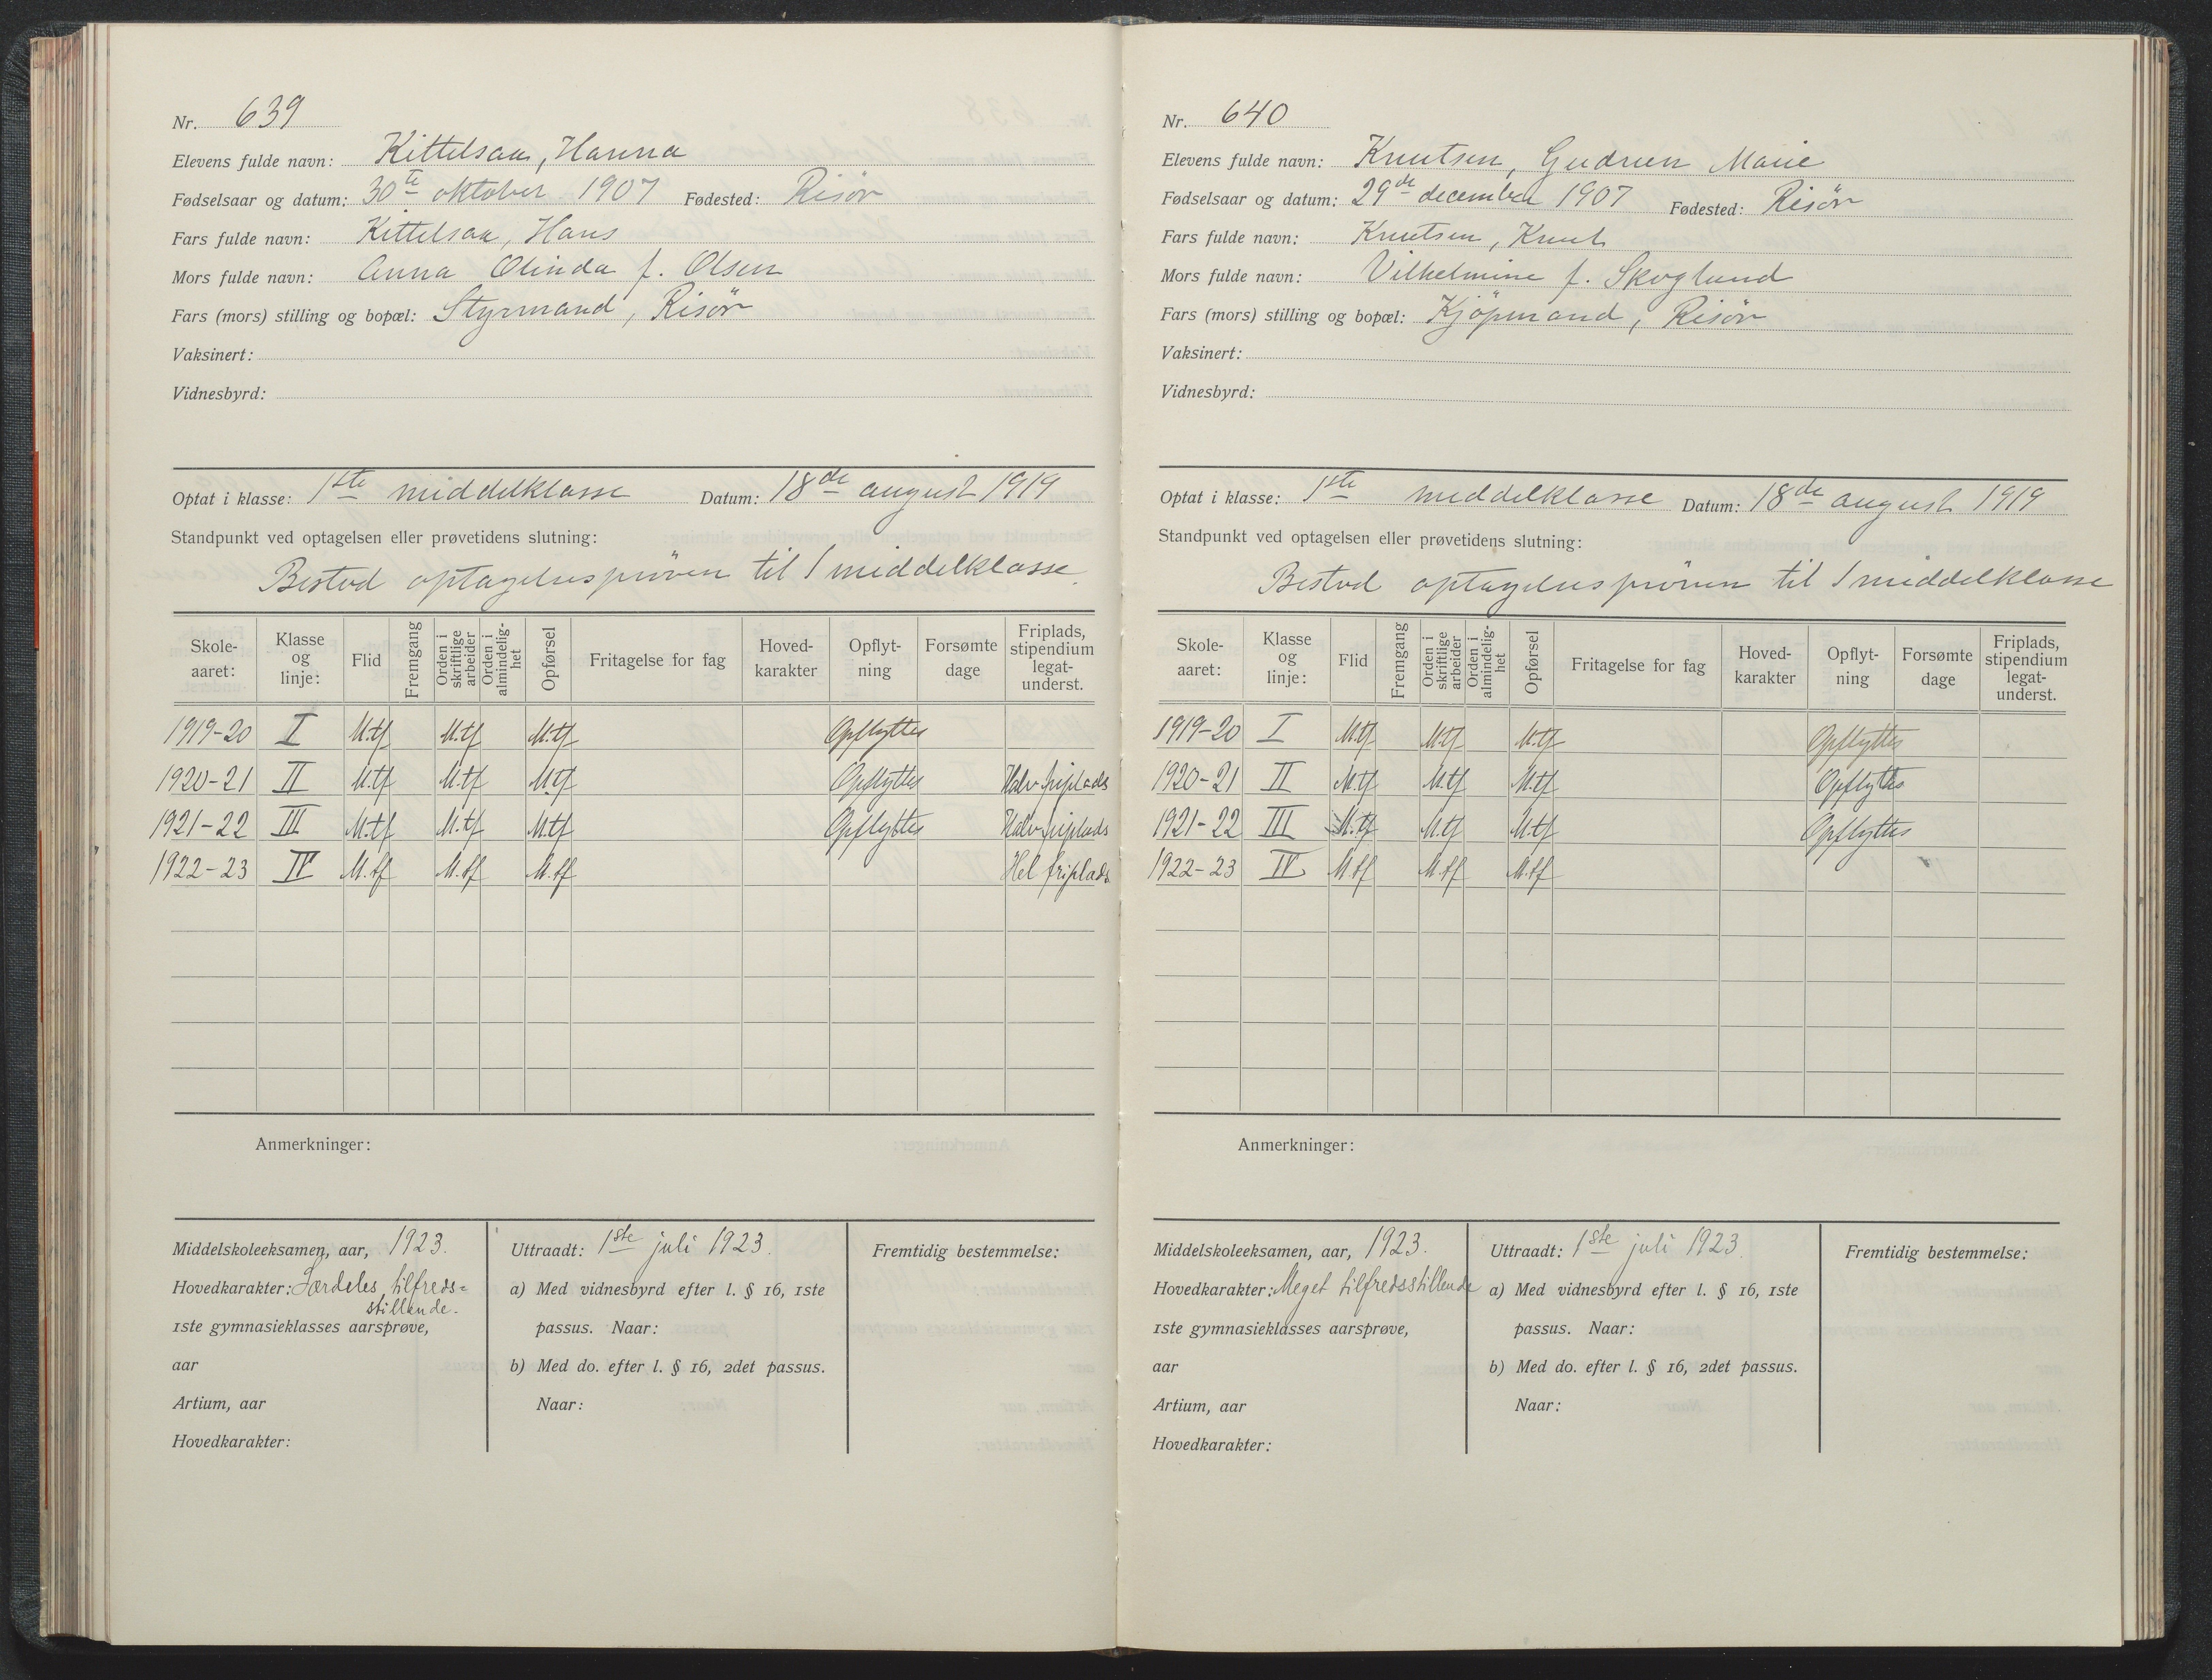 Nr. 639
Elevens fulde navn: Kittelsaa, Hanna
Fødselsaar og datum: 30te oktober 1907 Fødested: Risör
Fars fulde navn: Kittelsaa, Hans
Mors fulde navn: Anna Olinda f. Olsen
Fars (mors) stilling og bopæl: Styrmand, Risör
Vaksinert:
Vidnesbyrd:
Optat i klasse: 1ste middelklasse Datum: 18de august 1919
Standpunkt ved optagelsen eller prøvetidens slutning:
Bestod optagelsespröven til I middelklasse.
Skole-aaret: Klasse og linje: Flid Fremgang Orden i skriftlige arbeider Orden i almindelig-het Opførsel Fritagelse for fag Hoved-karakter Opflyt-ning Forsømte dage Friplads, stipendium legat-underst.
1919-20 I M.tf M.tf M.tf Opflyttes
1920-21 II M.tf M.tf M.tf Opflyttes Halv friplads
1921-22 III M.tf M.tf M.tf Opflyttes Halv friplads
1922-23 IV M.tf M.tf M.tf Hel friplads
Anmerkninger:
Middelskoleeksamen, aar, 1923.
Hovedkarakter: Særdeles tilfreds=
stillende.
1ste gymnasieklasses aarsprøve,
aar
Artium, aar
Hovedkarakter:
Uttraadt: 1ste juli 1923.
a) Med vidnesbyrd efter l. § 16, 1ste
passus. Naar:
b) Med do. efter l. § 16, 2det passus.
Naar:
Fremtidig bestemmelse:
Nr. 640
Elevens fulde navn: Knutsen, Gudrun Marie
Fødselsaar og datum: 29de december 1907 Fødested: Risör
Fars fulde navn: Knutsen, Knut
Mors fulde navn: Vilhelmine f. Skoglund
Fars (mors) stilling og bopæl: Kjöpmand, Risör
Vaksinert:
Vidnesbyrd:
Optat i klasse: 1ste middelklasse Datum: 18de august 1919
Standpunkt ved optagelsen eller prøvetidens slutning:
Bestod optagelsespröven til I middelklasse
Skole-aaret: Klasse og linje: Flid Fremgang Orden i skriftlige arbeider Orden i almindelig-het Opførsel Fritagelse for fag Hoved-karakter Opflyt-ning Forsømte dage Friplads, stipendium legat-underst.
1919-20 I M.tf M.tf M.tf Opflyttes
1920-21 II M.tf M.tf M.tf Opflyttes
1921-22 III M.tf M.tf M.tf Opflyttes
1922-23 IV M.tf M.tf M.tf
Anmerkninger:
Middelskoleeksamen, aar, 1923.
Hovedkarakter: Meget tilfredsstillende
1ste gymnasieklasses aarsprøve,
aar
Artium, aar
Hovedkarakter:
Uttraadt: 1ste juli 1923.
a) Med vidnesbyrd efter l. § 16, 1ste
passus. Naar:
b) Med do. efter l. § 16, 2det passus.
Naar:
Fremtidig bestemmelse: